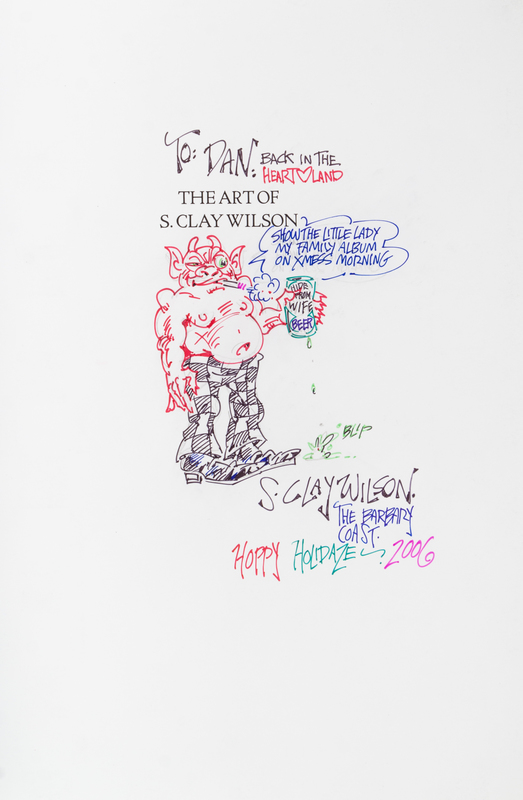 TO: DAN: BACK IN THE
HEART♡LAND
THE ART OF
S. CLAY WILSON
SHOW THE LITTLE LADY
MY FAMILY ALBUM
ON XMESS MORNING
HIDE
FROM
WIFE
BEER
BLIP
S. CLAY WILSON.
THE BARBARY
COAST.
HOPPY HOLIDAZE 2006